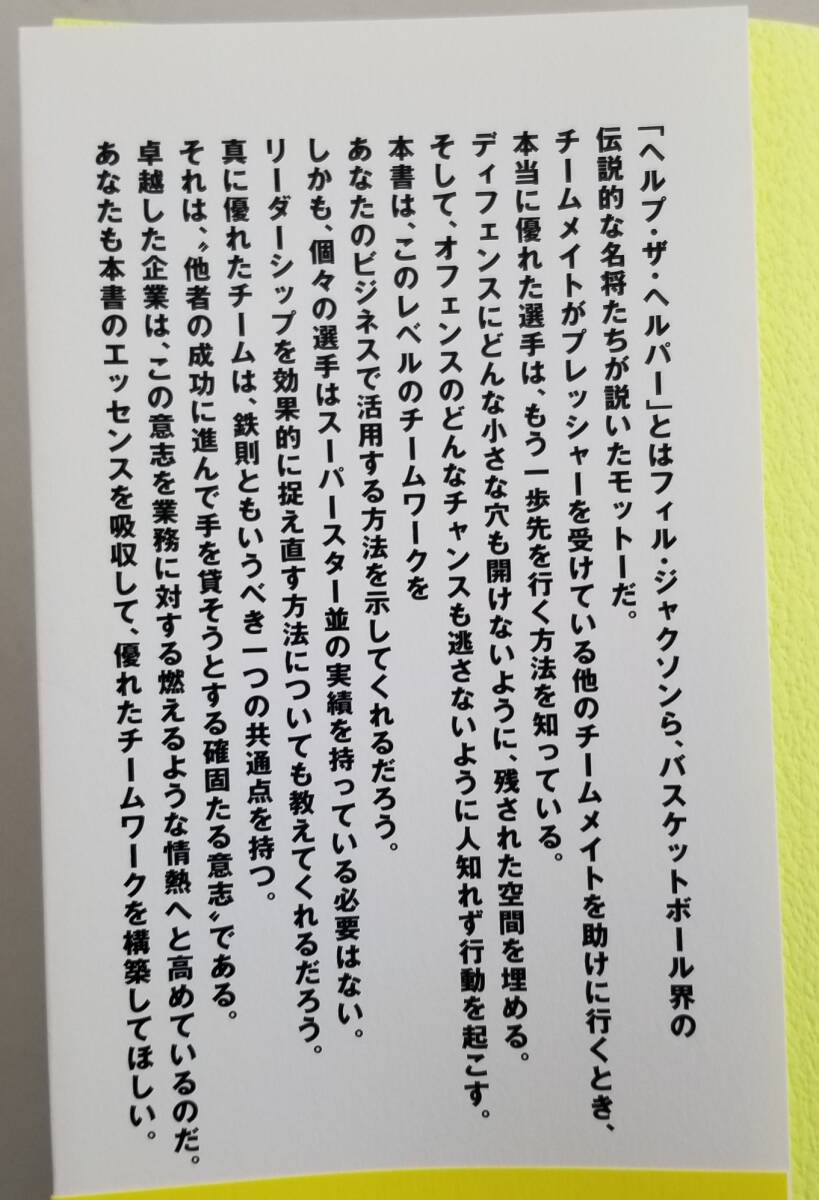 「ヘルプ・ザ・ヘルパー」とはフィル・ジャクソンら、バスケットボール界の
伝説的な名将たちが説いたモットーだ。
チームメイトがプレッシャーを受けている他のチームメイトを助けに行くとき、
本当に優れた選手は、もう一歩先を行く方法を知っている。
ディフェンスにどんな小さな穴も開けないように、残された空間を埋める。
そして、オフェンスのどんなチャンスも逃さないように人知れず行動を起こす。
本書は、このレベルのチームワークを
あなたのビジネスで活用する方法を示してくれるだろう。
しかも、個々の選手はスーパースター並の実績を持っている必要はない。
リーダーシップを効果的に捉え直す方法についても教えてくれるだろう。
真に優れたチームは、鉄則ともいうべき一つの共通点を持つ。
それは、〝他者の成功に進んで手を貸そうとする確固たる意志〟である。
卓越した企業は、この意志を業務に対する燃えるような情熱へと高めているのだ。
あなたも本書のエッセンスを吸収して、優れたチームワークを構築してほしい。